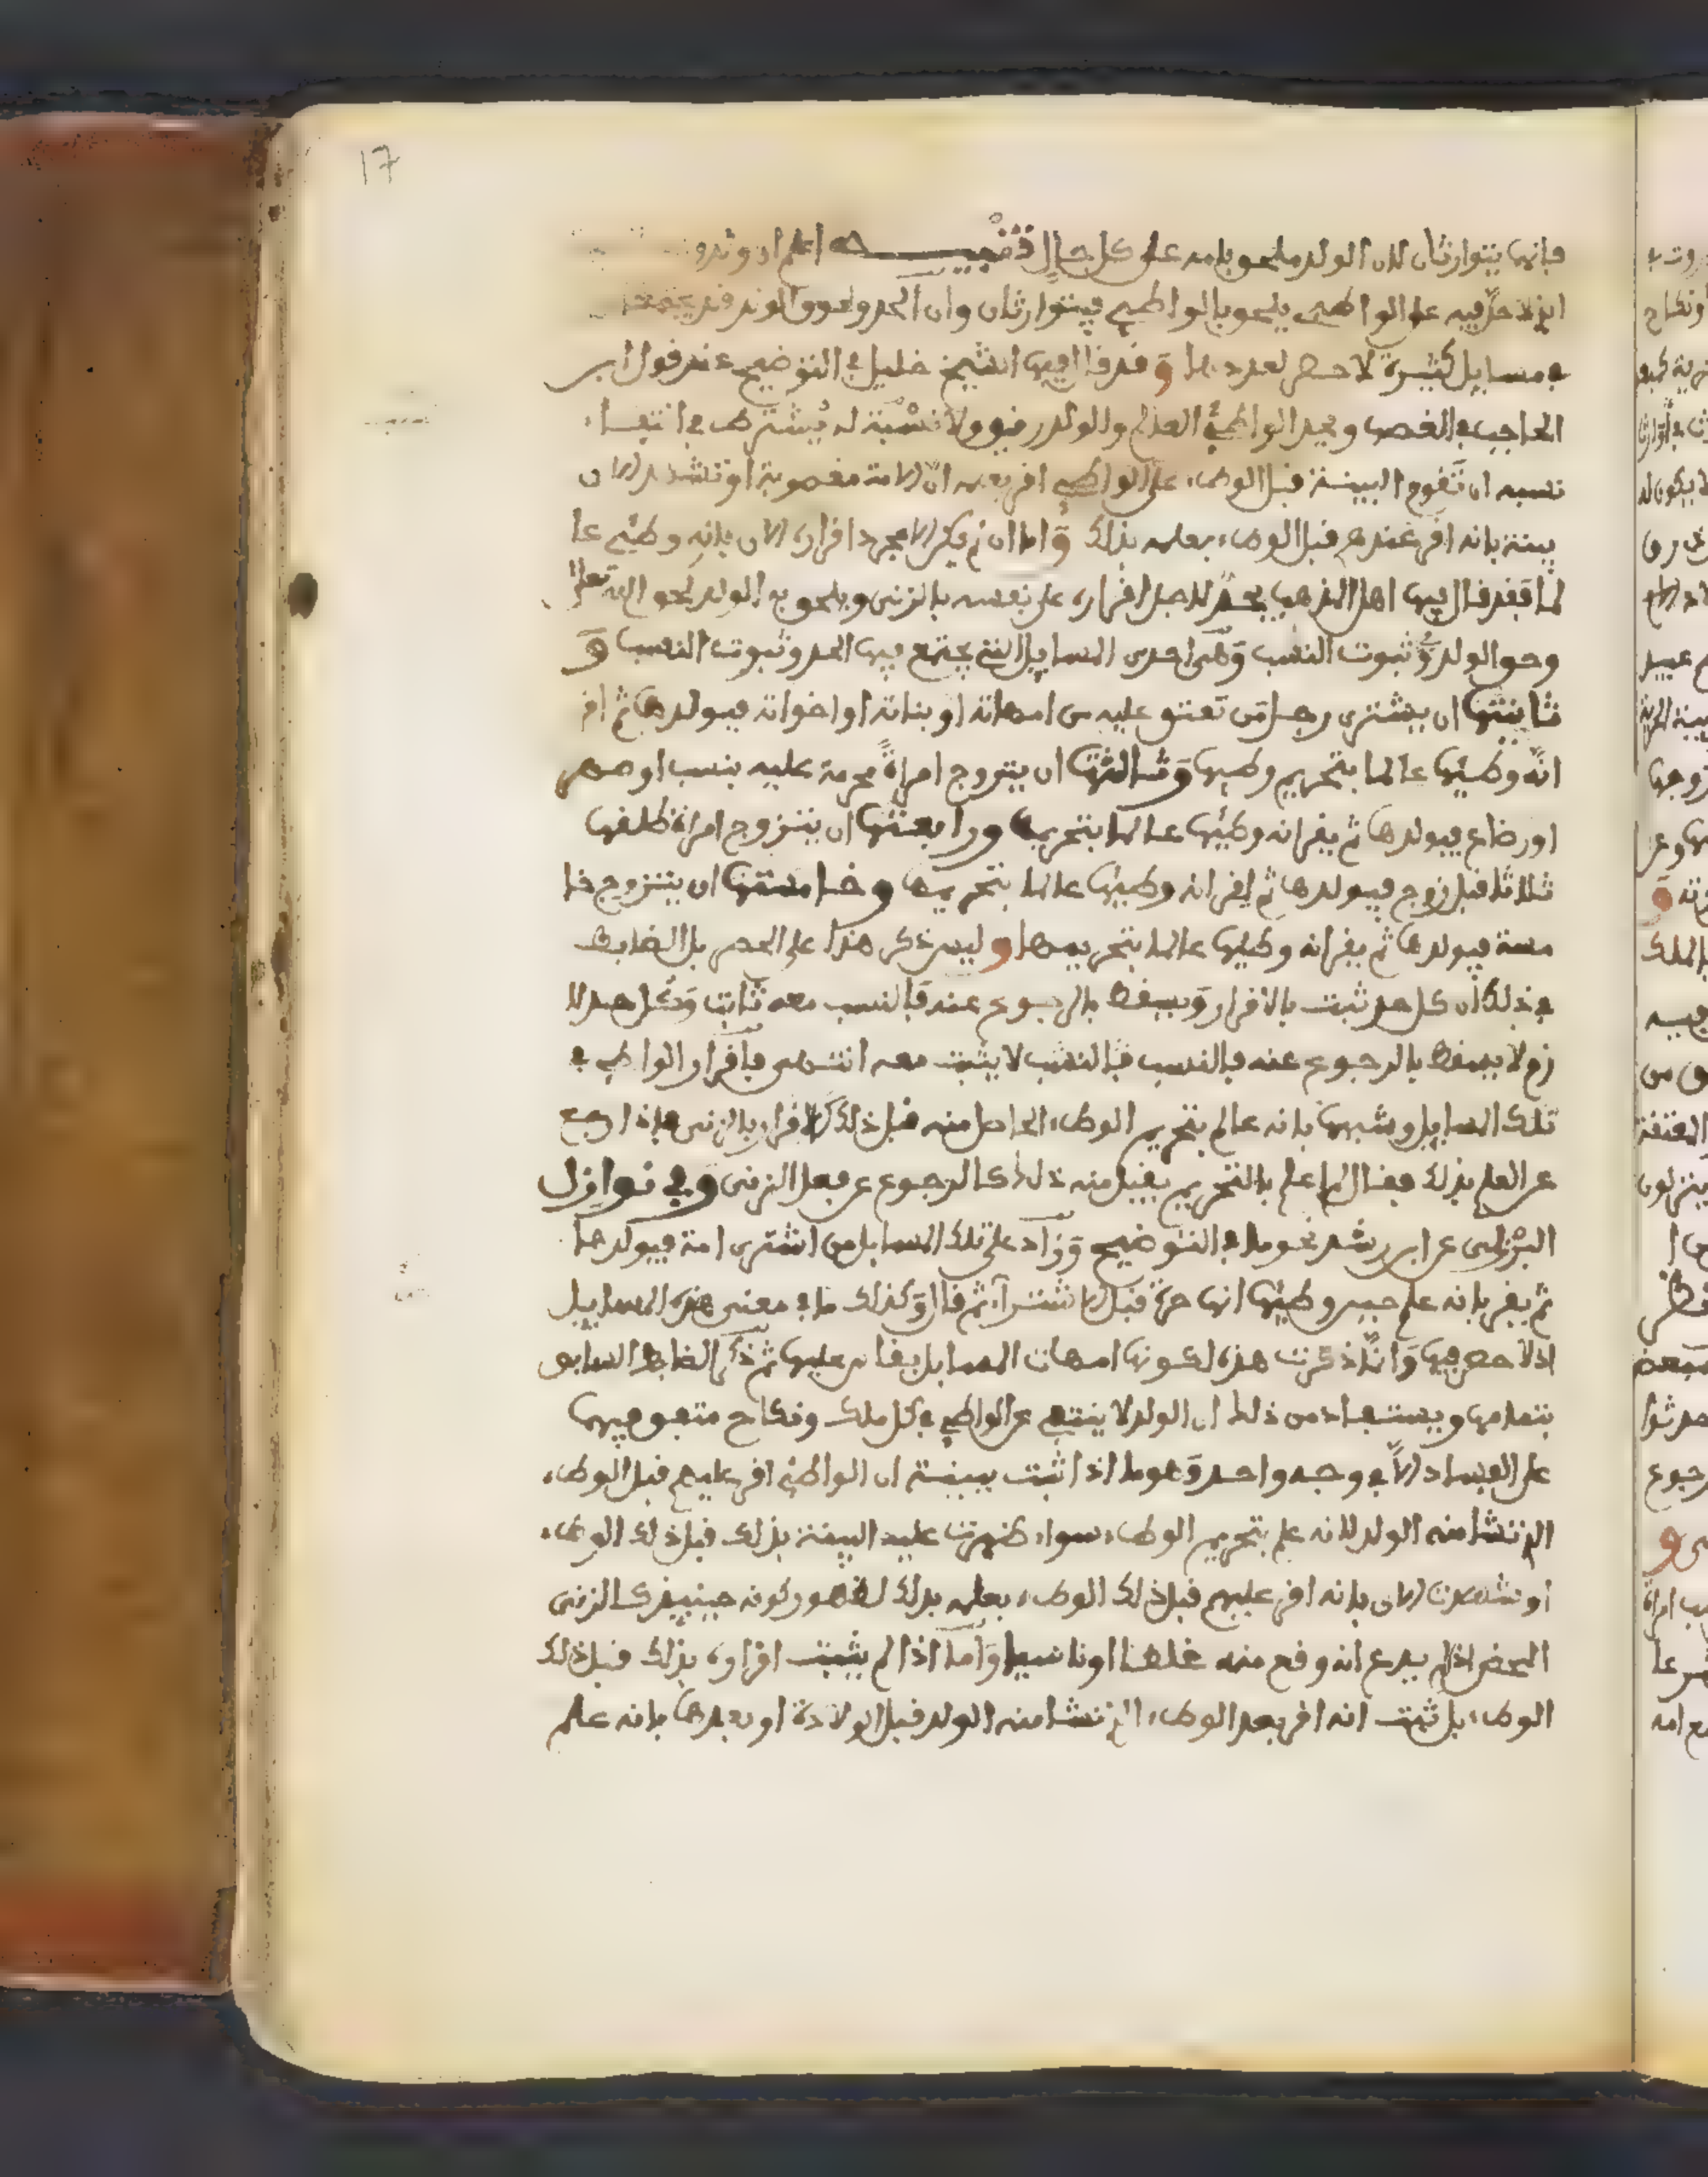 17
فإنهما يتوارثان لأن الولد ملحوق بأمه على كل حال تنبيـــــه اعلم أن ولد
الذي لا حد فيه على الواطئ يلحق بالواطئ فيتوارثان وأن الحد ولحوق الولد قد يجتمعا
في مسايل كثيرة لا حصر لعددها وقد قال فيها الشيخ خليل في التوضيح عند قول ابن
الحاجب في الغصب ويحد الواطئ العالم والولد رقيق ولا نسبة له يشترط في انتفاء
نسبه ان تقوم البينة قبل الوطء على الواطئ اقر بعلمه ان الامة مغصوبة او تشهد الان
بينة بانه اقر عندهم قبل الوطء بعلمه بذلك وأما ان لم يكن الا مجرد اقراره الان بانه وطئ عا
لما فقد قال فيها اهل المذهب يحد لاجل اقراره على نفسه بالزنى ويلحق به الولد لحق الله تعالى
وحق الولد في ثبوت النسب وهي احدى المسايل التي يجتمع فيها الحد وثبوت النسب و
ثانيتها ان يشتري رجل من تعتق عليه من امهاته او بناته او اخواته فيولدها ثم اقر
انه وطئها عالما بتحريم وطيها وثالثتها ان يتزوج امراة محرمة عليه بنسب او صهر
او رضاع فيولدها ثم يقر انه وطئها عالما بتحريمها ورابعتها ان يتزوج امراة طلقها
ثلاثا قبل زوج فيولدها ثم يقر انه وطئها عالما بتحريمها وخامستها ان يتزوج خا
مسة فيولدها ثم يقر انه وطئها عالما بتحريمها وليس ذكر هذا على الحصر بل الضابط
في ذلك ان كل حد ثبت بالاقرار ويسقط بالرجوع عنه فالنسب معه ثابت وكل حد لا
زم لا يسقط بالرجوع عنه فالنسب فالنسب لا يثبت معه انتهى فاقرار الواطئ في
تلك المسايل وشبهها بانه عالم بتحريم الوطء الحاصل منه قبل ذلك كالاقرار بالزنى فاذا رجع
عن العلم بذلك فقال لم اعلم بالتحريم يقبل منه ذلك كالرجوع عن فعل الزنى وفي نوازل
البرزلي عن ابن رشد نحو ما في التوضيح وزاد على تلك المسايل من اشترى امة فيولدها
ثم يقر بانه علم حين وطئها انها حرة قبل الاشتراء ثم قال وكذلك ما في معنى هذه المسايل
اذ لا حصر فيها وانما ذكرت هذه لكونها امهات المسايل يقاس عليها ثم ذكر الضابط السابق
بتمامه ويستفاد من ذلك ان الولد لا ينتفي عن الواطئ في كل ملك ونكاح متفق فيهما
على الفساد الا في وجه واحد وهو ما اذا ثبت ببينة ان الواطئ اقر عليهم قبل الوطء
الذي نشا منه الولد لانه علم بتحريم الوطء سواء ظهرت عليه البينة بذلك قبل ذلك الوطء
او شهدت الان بانه اقر عليهم قبل ذلك الوطء بعلمه بذلك لظهور كونه حينئذ كالزنى
المحض اذا لم يدع انه وقع منه غلطا او ناسيا وأما اذا لم يثبت اقراره بذلك قبل ذلك
الوطء بل ثبت انه اقر بعد الوطء الذي نشا منه الولد قبل الولادة او بعدها بانه علم